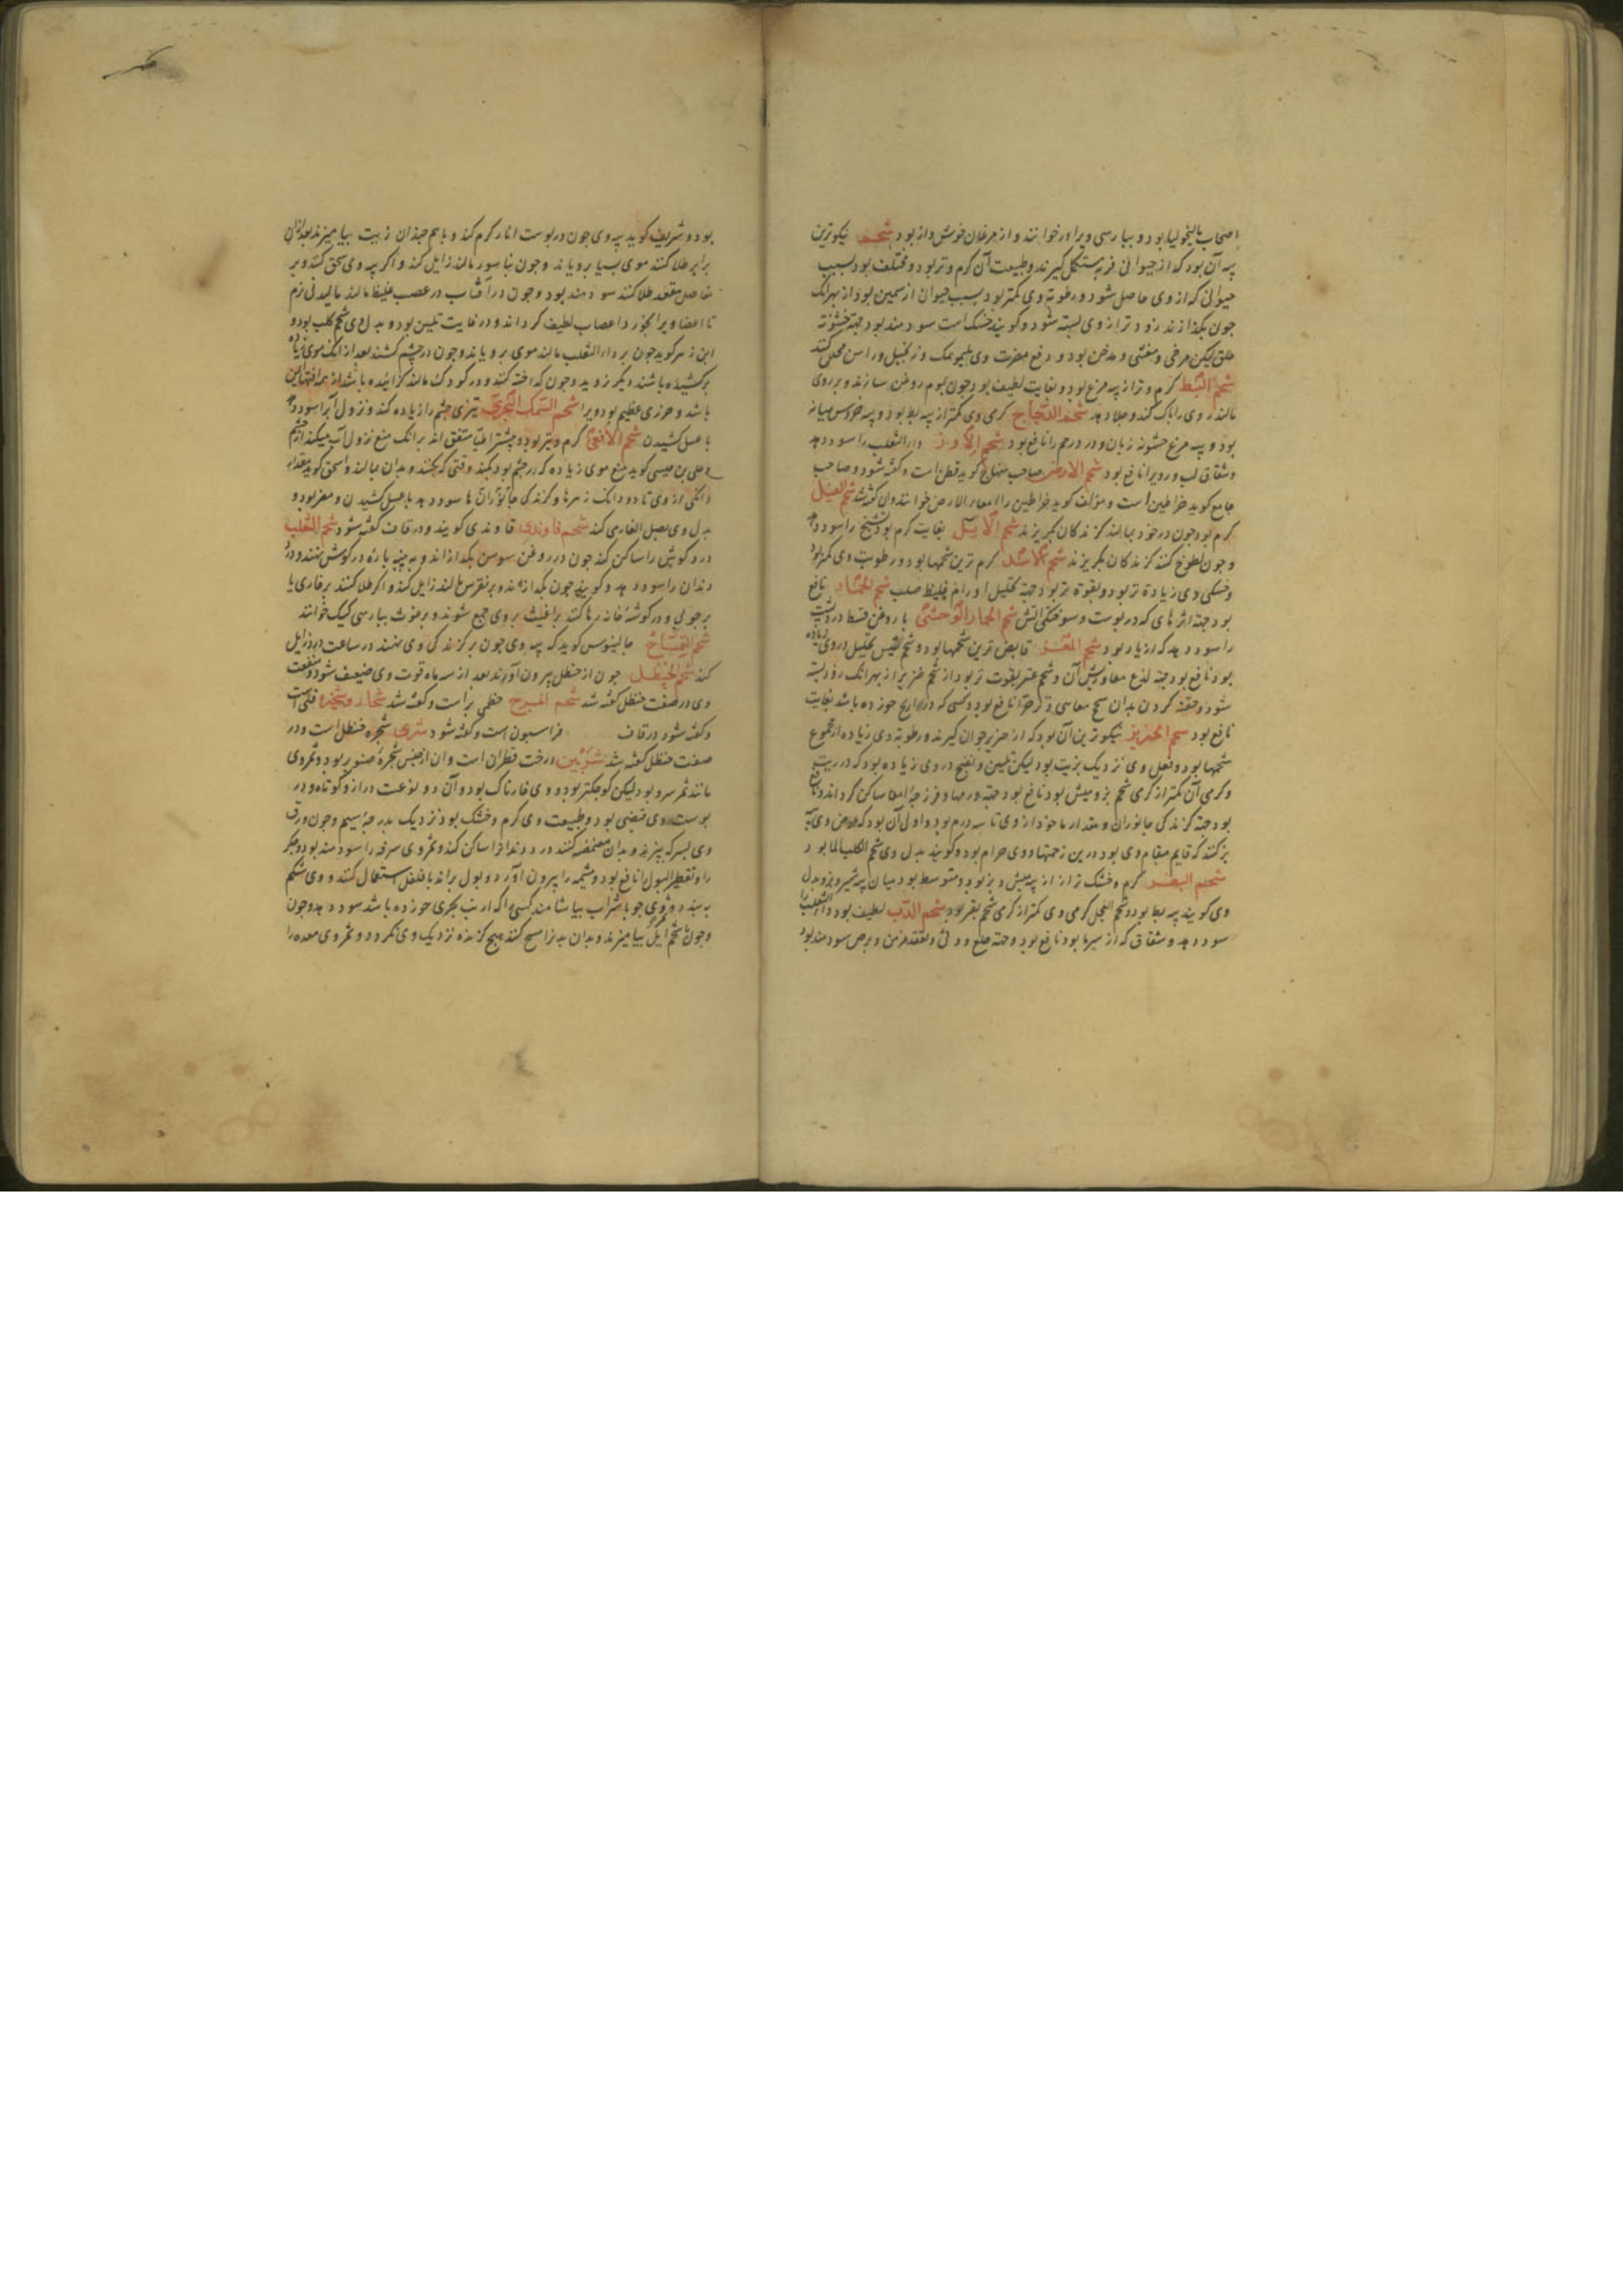 اصحاب مالیخولیا بود و بپارسی ویرا ورخوانند و از مرغان خوش واز بود شحم نیکوترین
پیه آن بود که از حیوانی فربه مستکمل گیرند و طبیعت آن کرم و تر بود و مختلف بود بسبب
حیوانی که از وی حاصل شود و رطوبة وی کمتر بود بسبب حیوان از سمین بود از بهر آنک
جون بکدازند زود تر از وی بسته شود و کویند خشک است سودمند بود جهة خشونة
حلق لیکن مرخی و مغثی و مدخن بود و دفع مضرت وی بلیمو نمک و زنجبیل و راسن مخلل کنند
شحم البط کرم و تر از پیه مرغ بود و بغایت لطیف بود جون بموم روغن سازند و بر روی
مالند روی را پاک کند و جلا دهد شحم الدجاج کرمی وی کمتر از پیه بط بود و پیه خروس میانه
بود و پیه مرغ خشونة زبان و درد رحم را نافع بود شحم الاوز داء الثعلب را سود دهد
و شقاق لب و رو را نافع بود شحم الارض صاحب منهاج کوید قطن است و کفته شود و صاحب
جامع کوید خراطین است و مؤلف کوید خراطین را امعاء الارض خوانند و آن کفته شد شحم الفیل
کرم بود جون در خود بمالند کزندکان بکریزند شحم الایل بغایت کرم بود تشنج را سود دهد
و جون لطوخ کنند کزندکان بکریزند شحم الاسد کرم ترین شحمها بود و رطوبت وی کمتر بود
و خشکی وی زیادة تر بود و بقوة تر بود جهة تحلیل اورام غلیظ صلب شحم الحمار نافع
بود جهة اثرهای که در پوست و سوختکی آتش شحم الحمار الوحشی با روغن قسط درد پشت
را سود دهد که از باد بود شحم المعز قابض ترین شحمها بود و شحم تیس تحلیل در وی زیاده
بود نافع بود جهة لذع معا و ریش آن و شحم عنز بقوت تر بود از شحم خنزیر از بهر آنک زود بسته
شود و حقنه کردن بدان سحج معا و زحیر را نافع بود و کسی که ذراریح خورده باشد بغایت
نافع بود شحم الخنزیر نیکوترین آن بود که از خنزیر جوان گیرند و رطوبة وی زیاده از مجموع
شحمها بود و فعل وی نزدیک بزیت بود لیکن تلیین و نضج در وی زیاده بود که در زیت
و کرمی آن کمتر از کرمی شحم بز و میش بود نافع بود جهة ورمها و قرحهٔ امعا ساکن کرداند و نافع
بود جهة کزندکی جانوران و مقدار ماخوذ از وی تا سه درم بود و اولی آن بود که عوض وی پیه
بز کنند که قایم مقام وی بود درین زحمتها و وی حرام بود و کویند بدل وی شحم الکلب الما بود
شحم البقر کرم و خشک تر از پیه میش و بز بود و متوسط بود میان پیه شیر و بز و بدل
وی کویند پیه بط بود و شحم العجل کرمی وی کمتر از کرمی شحم بقر بود شحم الدب لطیف بود داء الثعلب را
سود دهد و شقاق که از سرما بود نافع بود و جهة خلع و وثی و تعقد مزمن و برص سودمند بود
بود و شریف کوید پیه وی جون در پوست انار کرم کنند و با هم جندان زیت بیامیزند بعد از آن
برابر طلا کنند موی بسیار برویاند و جون بناسور مالند زایل کند و اکر پیه وی سحق کنند و بر
مفاصل مقعد طلا کنند سودمند بود و جون در آفتاب در عصب غلیظ مالند مالیدنی نرم
تا اعضا ویرا بخورد اعصاب لطیف کرداند و در غایت تلیین بود و بدل وی شحم کلب بود و
ابن زهر کوید جون بر داء الثعلب مالند موی برویاند و جون در چشم کشند بعد از آنک موی زیاده
برکشیده باشند دیکر نروید و جون کداخته کنند و در کودک مالند کزانیده باشد از همه آفتها ایمن
باشد و حرزی عظیم بود ویرا شحم السمک البحری تیزی چشم را زیاده کند و نزول آب را سود دهد
با عسل کشیدن شحم الافعی کرم و تیز بود و بیشتر اطبا متفق اند برانک منع نزول آب میکند از چشم
و علی بن عیسی کوید منع موی زیاده که در چشم بود بکند وقتی که بکنند و بدان بمالند و اسحق کوید مقدار
دانکی از وی تا دو دانک زهرها و کزندکی جانوران را سود دهد با عسل کشیدن و مضر بود و
بدل وی بصل الفار می کند شحم قاوندی قاوندی کویند و در قاف کفته شود شحم الثعلب
درد کوش را ساکن کند جون در روغن سوسن بکدازاند و به پنبه پاره در کوش نهند و درد
دندان را سود دهد و کویند جون بکدازند و بر نقرس مالند زایل کند و اکر طلا کنند بر خاری یا
بر چوبی و در کوشهٔ خانه رها کنند براغیث بر وی جمع شوند و برغوث بپارسی کیک خوانند
شحم التمساح جالینوس کوید که پیه وی جون بر کزندکی وی نهند در ساعت درد زایل
کند شحم الحنظل جون از حنظل بیرون آورند بعد از سه ماه قوت وی ضعیف شود و منفعت
وی در صفت حنظل کفته شد شحم المرج خطمی بری است و کفته شد شخار و شخیره قلی است
و کفته شود در قاف فراسیون است و کفته شود شری شجره حنظل است و در
صفت حنظل کفته شد شربین درخت قطران است و آن از جنس شجرهٔ صنوبر بود و ثمر وی
مانند ثمر سرو بود لیکن کوچکتر بود و وی خارناک بود و آن دو نوعست دراز و کوتاه و در
پوست وی قبضی بود و طبیعت وی کرم و خشک بود نزدیک بدرجهٔ سیم و جون ورق
وی بسرکه بپزند و بدان مضمضه کنند درد دندان را ساکن کند و ثمر وی سرفه را سودمند بود و جکر
را و تقطیر البول را نافع بود و مشیمه را بیرون آورد و بول براند با فلفل استعمال کنند و وی شکم
ببندد و ثمر وی جو با شراب بیاشامند کسی را که ارنب بحری خورده باشد سود دهد و جون
و جون با شحم ایل بیامیزند و بدان بدن را مسح کنند هیچ کزنده نزدیک وی نکردد و ثمر وی معده را